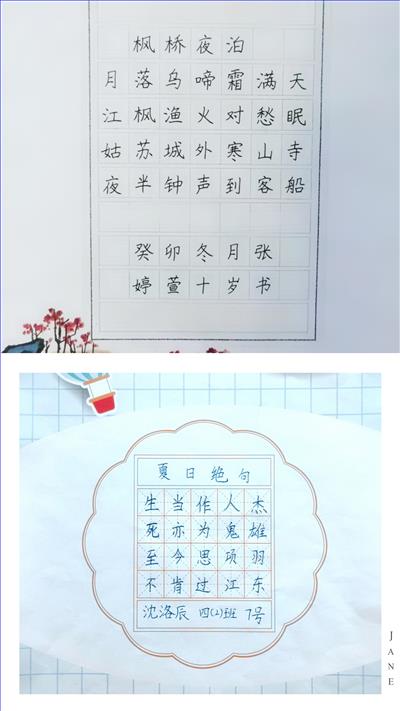 枫桥夜泊
月落乌啼霜满天
江枫渔火对愁眠
姑苏城外寒山寺
夜半钟声到客船
癸卯冬月张
婷萱十岁书
夏日绝句
生当作人杰
死亦为鬼雄
至今思项羽
不肯过江东
沈洛辰 四(2)班 7号
JANE